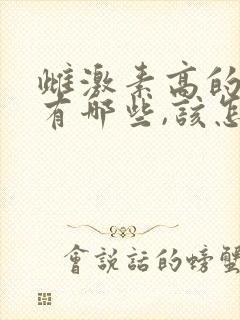 雌激素高的
有哪些,該怎
會說話的螃蟹